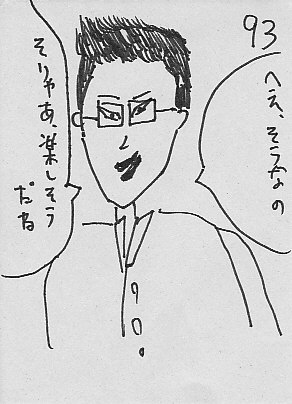 93
へえ、そうなの
そりゃあ、楽しそう
だね